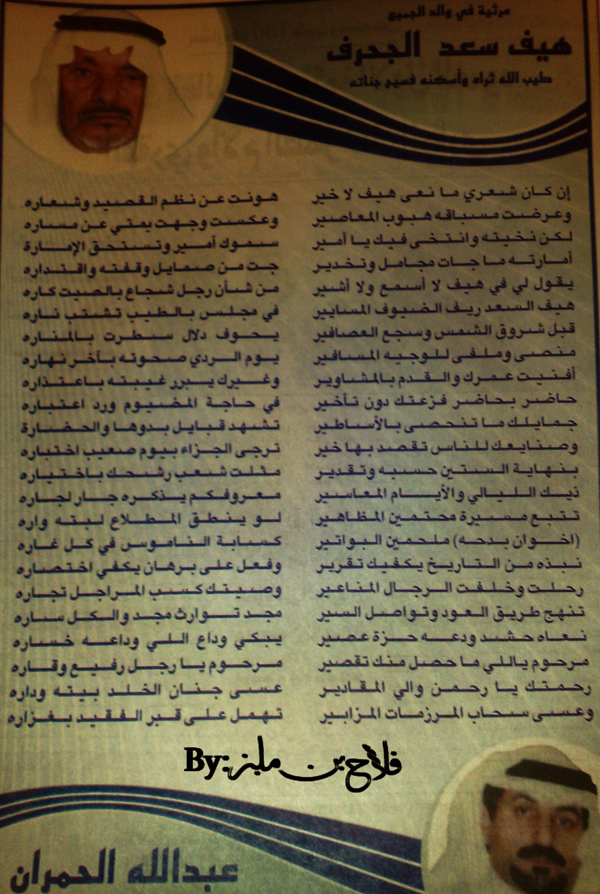 مرثية في والد الجميع
هيف سعد الجحرف
طيب الله ثراه وأسكنه فسيح جناته
إن كان شعري ما نعى هيف لا خير هونت عن نظم القصيد وشعاره
وعرضت مسباقه هبوب المعاصير وعكست وجهت يمتي عن مساره
لكن نخيته وانتخى فيك يا أمير سموك أمير وتستحق الإمارة
أمارته ما جات مجامل وتخدير جت من صمايل وقفته واقتداره
يقول لي في هيف لا أسمع ولا أشير من شأن رجل شجاع بالصيت كاره
هيف السعد ريف الضيوف المسايير في مجلس بالطيب تشتب ناره
قبل شروق الشمس وسجع العصافير يحوف دلال سطرت بالمناره
منصى وملفى للوجيه المسافير يوم الردي صحوته بآخر نهاره
أفنيت عمرك والقدم بالمشاوير وغيرك يبرر غيبته باعتذاره
حاضر بحاضر فزعتك دون تأخير في حاجة المضيوم ورد اعتباره
جمايلك ما تنحصى بالأساطير تشهد قبايل بدوها والحضارة
وصنايعك للناس تقصد بها خير ترجى الجزاء بيوم صعيب اختباره
بنهاية الستين حسبه وتقدير مثلت شعب رشحك باختياره
ذيك الليالي والأيام المعاسير معروفكم يذكره جار لجاره
تتبع مسيرة محتمين المظاهير لو ينطق المطلاع لبته واره
(اخوان بدحه) ملحمين البواتير كسابة الناموس في كل غاره
نبذه من التاريخ يكفيك تقرير وفعل على برهان يكفي اختصاره
رحلت وخلفت الرجال المناعير وصيتك كسب المراجل تجاره
تنهج طريق العود وتواصل السير مجد توارث مجد والكل ساره
نعاه حشد ودعه حزة عصير يبكي وداع اللي وداعه خساره
مرحوم ياللي ما حصل منك تقصير مرحوم يا رجل رفيع وقاره
رحمتك يا رحمن والي المقادير عسى جنان الخلد بيته وداره
وعسى سحاب المرزمات المزابير تهمل على قبر الفقيد بغزاره
By: فلاح بن ملبز
عبدالله الحمران